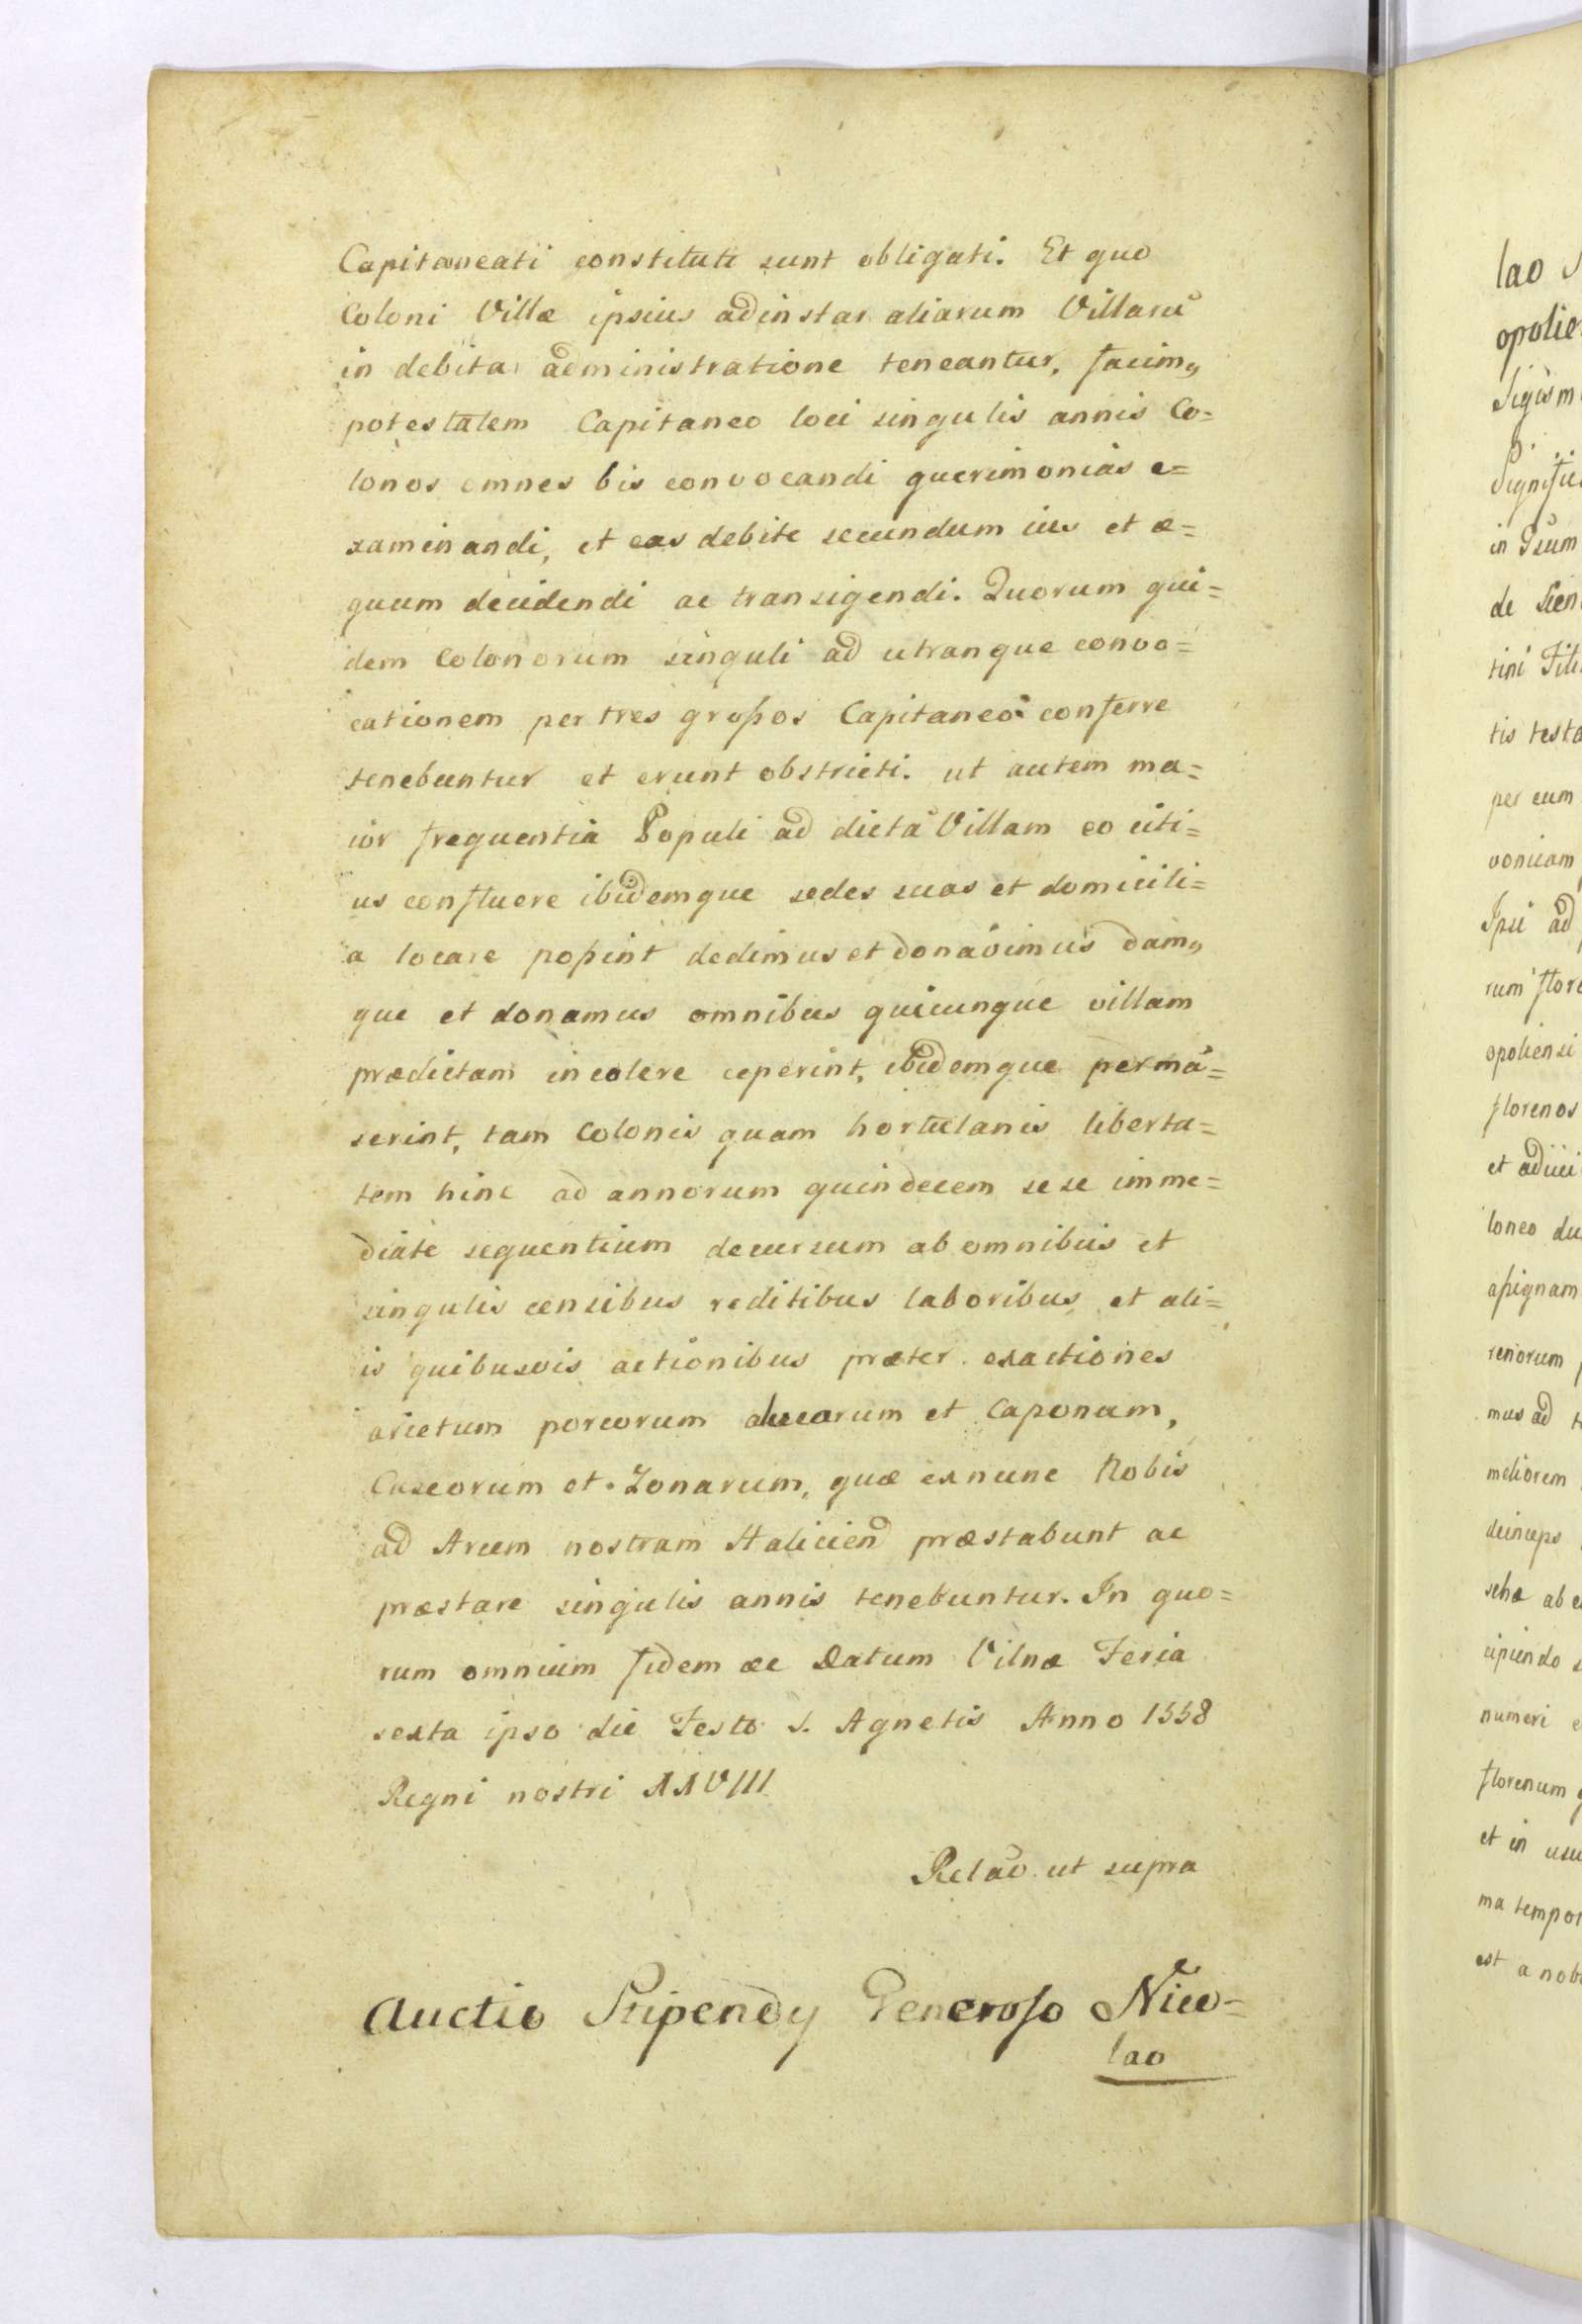 Capitaneati constituti sunt obligati. Et quo
Coloni Villæ ipsius ad instar aliarum Villarũ
in debita administratione teneantur, facim9
potestatem Capitaneo loci singulis annis Co=
lonos omnes bis convocandi querimonias e=
xaminandi, et eas debite secundum ius et æ=
quum decidendi ac transigendi. Quorum qui=
dem Colonorum singuli ad utranque convo=
cationem per tres großos Capitaneo conferre
tenebuntur et erunt obstricti. ut autem ma=
ior frequentia Populi ad dictã Villam eo citi=
us confluere ibidemque sedes suas et domicili=
a locare poßint dedimus et donavimus dam9
que et donamus omnibus quicunque villam
prædictam incolere ceperint, ibidemque permã=
serint, tam Colonis quam hortulanis liberta=
tem hinc ad annorum quindecem sese imme=
diate sequentium decursum ab omnibus et
singulis censibus reditibus laboribus et ali=
is quibusvis actionibus præter exactiones
arietum porcorum aucarum et Caponum,
Caseorum et Zonarum, quæ exnunc Nobis
ad Arcem nostram Haliciend præstabunt ac
præstare singulis annis tenebuntur. In quo=
rum omnium fidem ac Datum Vilnæ Feria
sexta ipso die Festo S. Agnetis Anno 1558
Regni nostri XXVIII
Relão ut supra
Auctio Stipendy Generoso Nico=
lao
lao
opolie
Sigism
Signific
in
de Sien
tini Fili
tis testa
per eum
vonicam
Ipsi ad
rum flore
opoliensi
florenos
et adiici
loneo du
aßignam
renorum
mus ad t
meliorem
deinceps
schæ ab e
cipiendo s
numeri e
florenum q
et in usu
ma tempor
est a nob